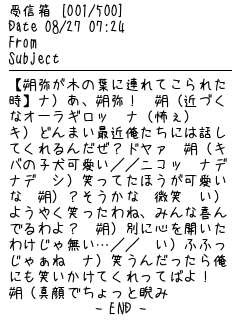 受信箱 [001/500]
Date 08/27 07:24
From
Subject
【朔弥が木の葉に連れてこられた
時】ナ）あ、朔弥！　朔（近づく
なオーラギロッ　ナ（怖ぇ）
キ）どんまい最近俺たちには話し
てくれるんだぜ？ドヤァ　朔（キ
バの子犬可愛い／／ニコッ　ナデ
ナデ　シ）笑ってたほうが可愛い
な　朔）？そうかな（微笑　い）
ようやく笑ったわね、みんな喜ん
でるわよ？　朔）別に心を開いた
わけじゃ無い…／／　い）ふふっ
じゃぁね　ナ）笑うんだったら俺
にも笑いかけてくれってばよ！
朔（真顔でちょっと睨み
- END -